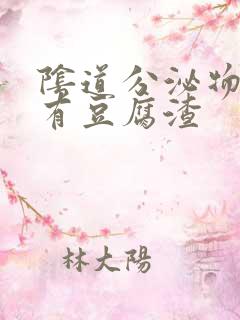 陰道分泌物
有豆腐渣
林大陽